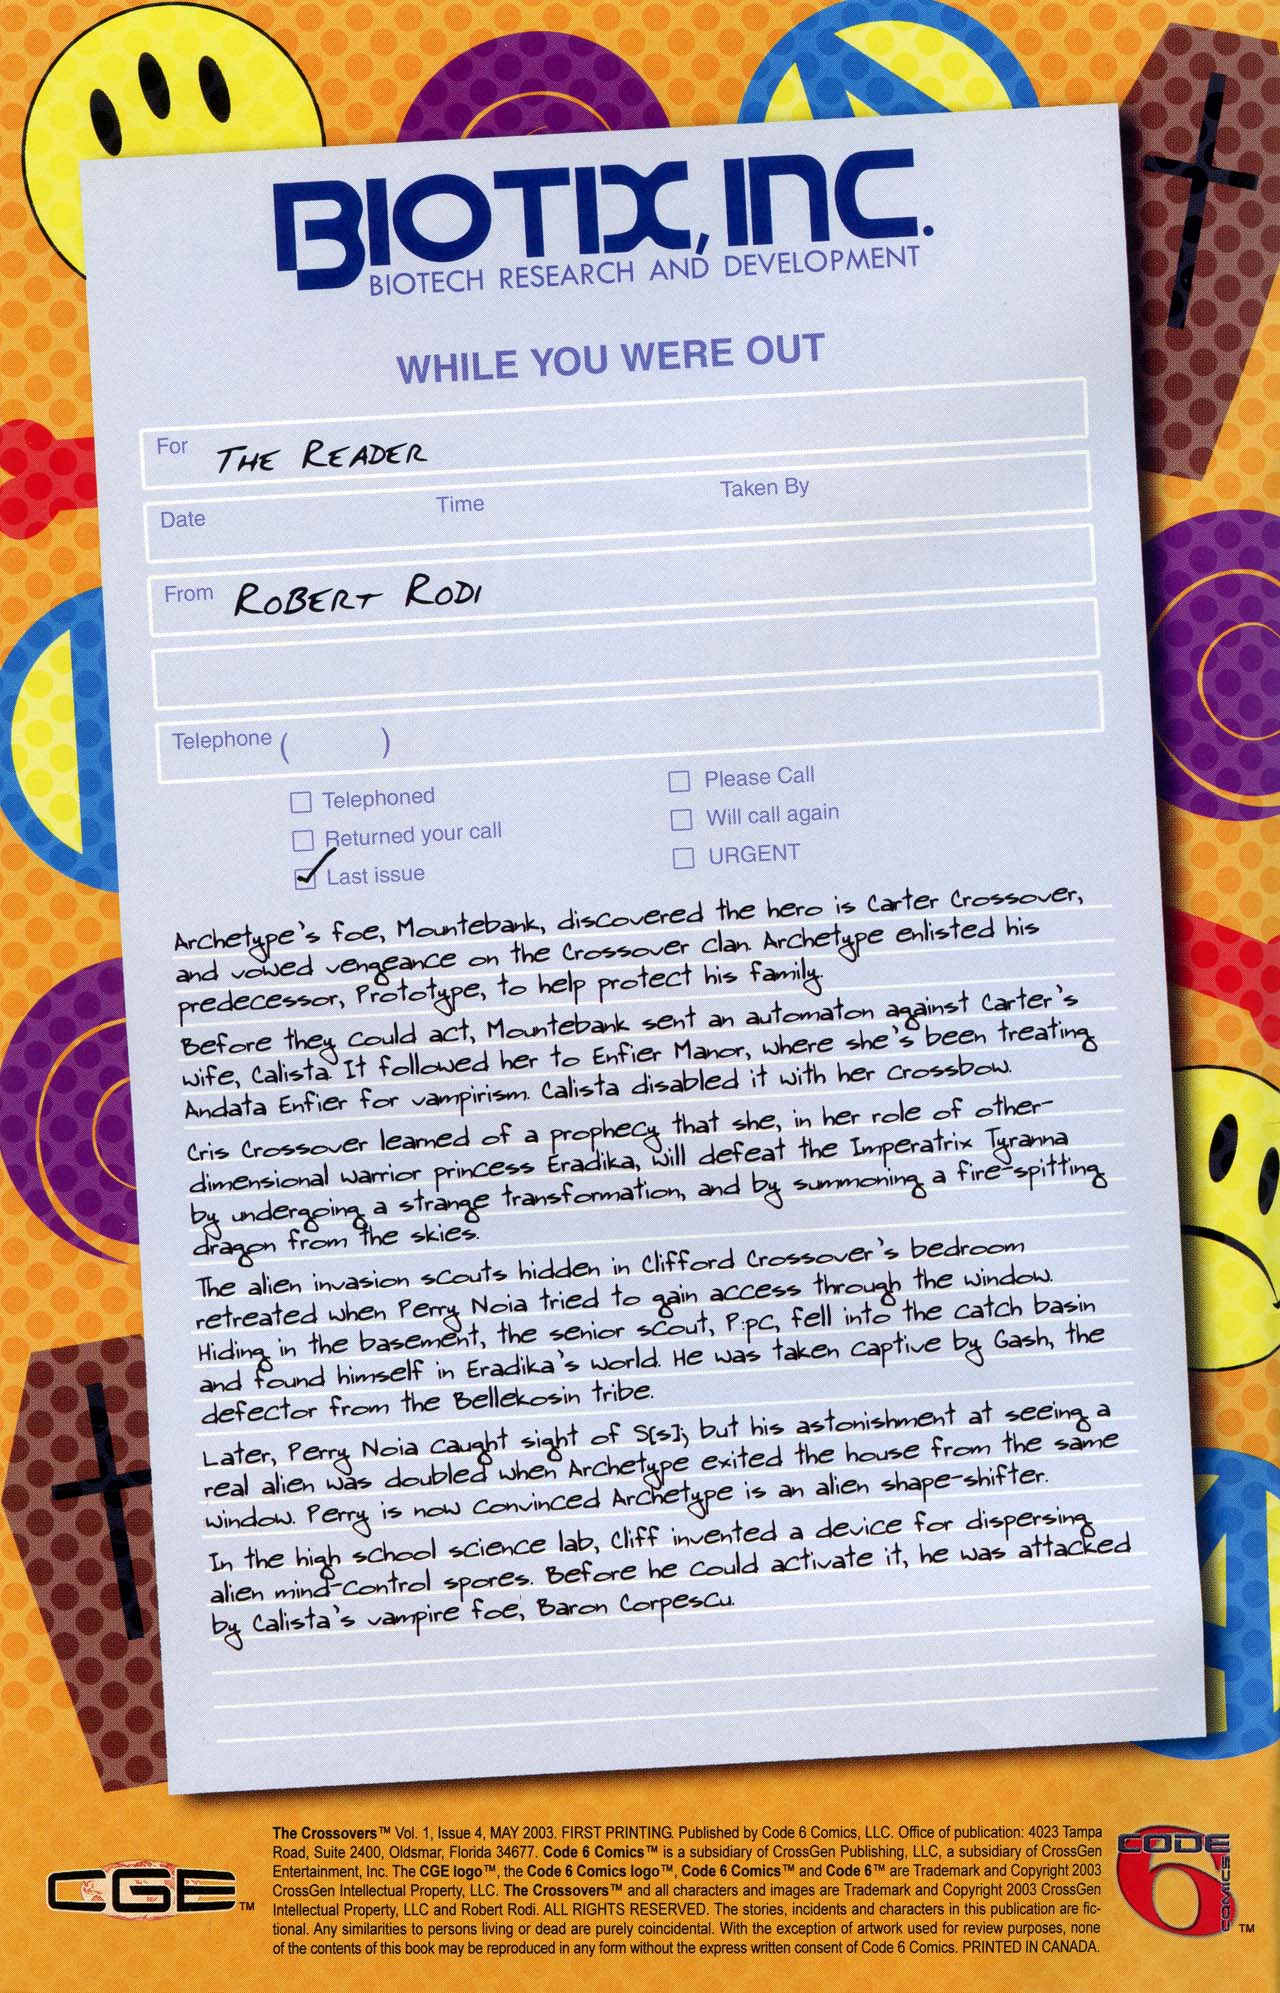 BIOTIX, INC.
BIOTECH RESEARCH AND DEVELOPMENT
WHILE YOU WERE OUT
For THE READER
Date Time Taken By
From ROBERT RODI
Telephone ( )
Telephoned
Returned your call
Last issue
Please Call
Will call again
URGENT
Archetype's foe, Mountebank, discovered the hero is Carter Crossover,
and vowed vengeance on the Crossover clan. Archetype enlisted his
predecessor, Prototype, to help protect his family.
Before they could act, Mountebank sent an automaton against Carter's
wife, Calista. It followed her to Enfier Manor, where she's been treating
Andata Enfier for vampirism. Calista disabled it with her crossbow.
Cris Crossover learned of a prophecy that she, in her role of other-
dimensional warrior princess Eradika, will defeat the Imperatrix Tyranna
by undergoing a strange transformation, and by summoning a fire-spitting
dragon from the skies.
The alien invasion scouts hidden in Clifford Crossover's bedroom
retreated when Perry Noia tried to gain access through the window.
Hiding in the basement, the senior scout, P:pc, fell into the catch basin
and found himself in Eradika's world. He was taken captive by Gash, the
defector from the Bellekosin tribe.
Later, Perry Noia caught sight of S[s]; but his astonishment at seeing a
real alien was doubled when Archetype exited the house from the same
window. Perry is now convinced Archetype is an alien shape-shifter.
In the high school science lab, Cliff invented a device for dispersing
alien mind-control spores. Before he could activate it, he was attacked
by Calista's vampire foe, Baron Corpescu.
The Crossovers™ Vol. 1, Issue 4, MAY 2003. FIRST PRINTING. Published by Code 6 Comics, LLC. Office of publication: 4023 Tampa
Road, Suite 2400, Oldsmar, Florida 34677. Code 6 Comics™ is a subsidiary of CrossGen Publishing, LLC, a subsidiary of CrossGen
Entertainment, Inc. The CGE logo™, the Code 6 Comics logo™, Code 6 Comics™ and Code 6™ are Trademark and Copyright 2003
CrossGen Intellectual Property, LLC. The Crossovers™ and all characters and images are Trademark and Copyright 2003 CrossGen
Intellectual Property, LLC and Robert Rodi. ALL RIGHTS RESERVED. The stories, incidents and characters in this publication are fic-
tional. Any similarities to persons living or dead are purely coincidental. With the exception of artwork used for review purposes, none
of the contents of this book may be reproduced in any form without the express written consent of Code 6 Comics. PRINTED IN CANADA.
CGE™
CODE 6 COMICS™